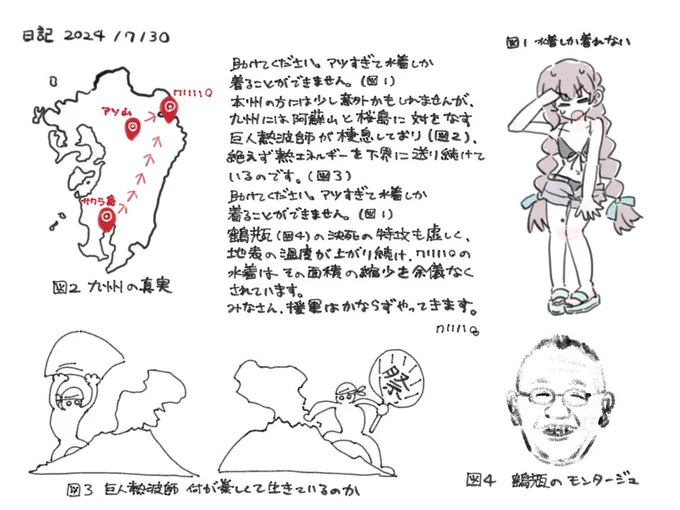 日記 2024/7/30
助けてください。アツすぎて水着しか
着ることができません。(図1)
本州の方には少し意外かもしれませんが、
九州には阿蘇山と桜島に対をなす
巨人熱波師が棲息しており(図2)、
絶えず熱エネルギーを下界に送り続けて
いるのです。(図3)
助けてください。アツすぎて水着しか
着ることができません。(図1)
鶴瓶(図4)の決死の特攻も虚しく、
地表の温度が上がり続け、
水着は、その面積の縮少を余儀なく
されています。
みなさん、援軍はかならずやってきます。
図1 水着しか着れない
アソ山
サクラ島
図2 九州の真実
祭
図3 巨人熱波師 何が楽しくて生きているのか
図4 鶴瓶のモンタージュ